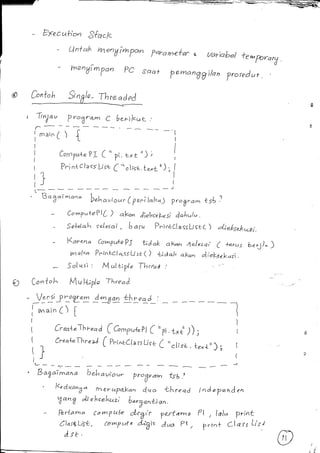 - Execution Stack
- Untuk menyimpan parameter & variabel temporary.
- menyimpan PC saat pemanggilan prosedur.
Contoh Single Threaded
Tinjau program C berikut :
main ( ) {
Compute PI ( "pi.txt" ) ;
Print Class List ( "clist.text" ) ;
}
Bagaimana behaviour (perilaku) program tsb ?
- ComputePI( ) akan dieksekusi dahulu.
- Setelah selesai, baru PrintClassList ( ) dieksekusi.
- Karena ComputePI tidak akan selesai ( terus berjln ). maka PrintClassList ( ) tidak akan dieksekusi.
- Solusi : Multiple Thread
Contoh Multiple Thread
- Versi program dengan thread :
main ( ) {
Create Thread ( ComputePI ( "pi.txt" ) ) ;
Create Thread ( PrintClassList ( "clist.text" ) ;
}
Bagaimana behaviour program tsb ?
- Keduanya merupakan dua thread independen yang dieksekusi bergantian.
- Pertama compute digit pertama PI, lalu print Class List, compute digis dua PI, print Class List dst.
11